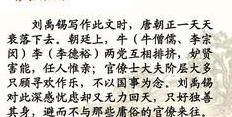 刘禹锡写作此文时，唐朝正一天天
衰落下去。朝廷上，牛（牛僧儒、李宗
闵）李（李德裕）两党互相排挤，妒贤
害能，任人惟亲；官僚士大夫阶层大多
只顾寻欢作乐，不以国事为念。刘禹锡
对此深感忧虑却又无力回天，只好独善
其身，避而不与那些庸俗的官僚来往。